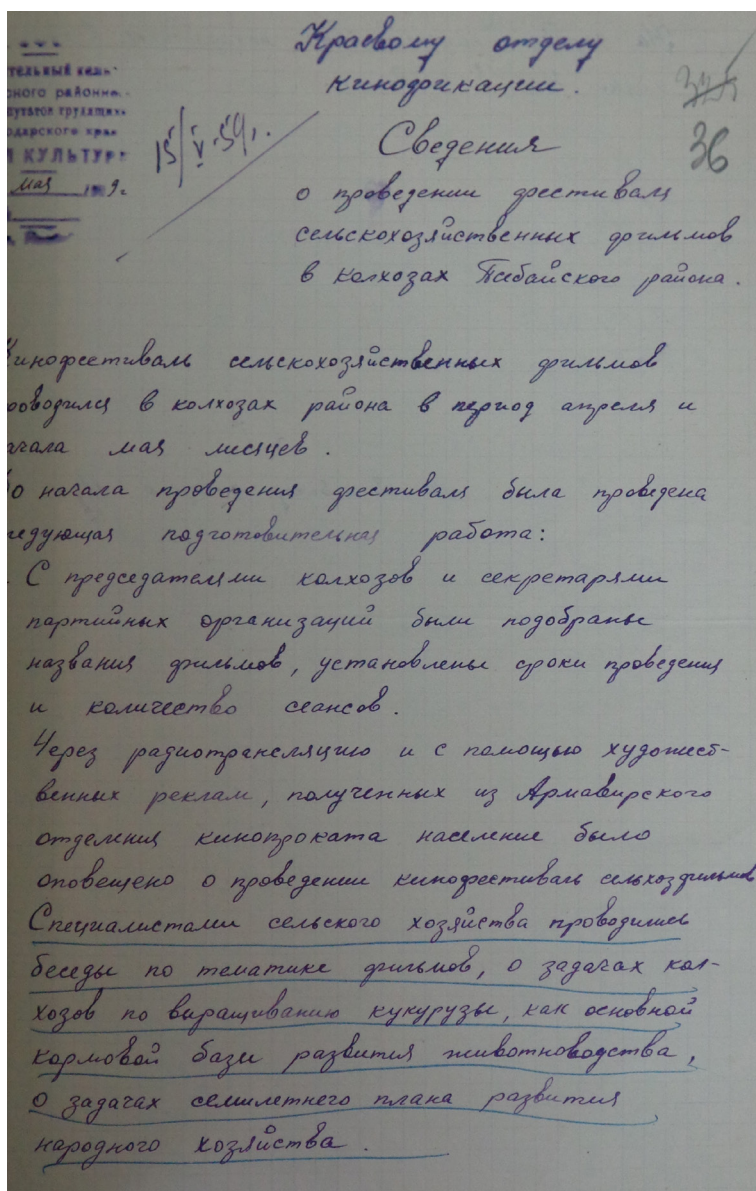 Краевому отделу
кинофикации.
325
36
15/V-59г.
Сведения
о проведении фестиваля
сельскохозяйственных фильмов
в колхозах Псебайского района.
тельный ком-
ного районно-
путатов трудящихс
одарского края
КУЛЬТУР
мая 19 9г.
Кинофестиваль сельскохозяйственных фильмов
роводился в колхозах района в период апреля и
ачала мая месяцев.
До начала проведения фестиваля была проведена
ледующая подготовительная работа:
С председателями колхозов и секретарями
партийных организаций были подобраны
названия фильмов, установлены сроки проведения
и количество сеансов.
Через радиотрансляцию и с помощью художест-
венных реклам, полученных из Армавирского
отделения кинопроката население было
оповещено о проведении кинофестиваль сельхозфильмов
Специалистами сельского хозяйства проводились
беседы по тематике фильмов, о задачах кол-
хозов по выращиванию кукурузы, как основной
кормовой базы развития животноводства,
о задачах семилетнего плана развития
народного хозяйства.